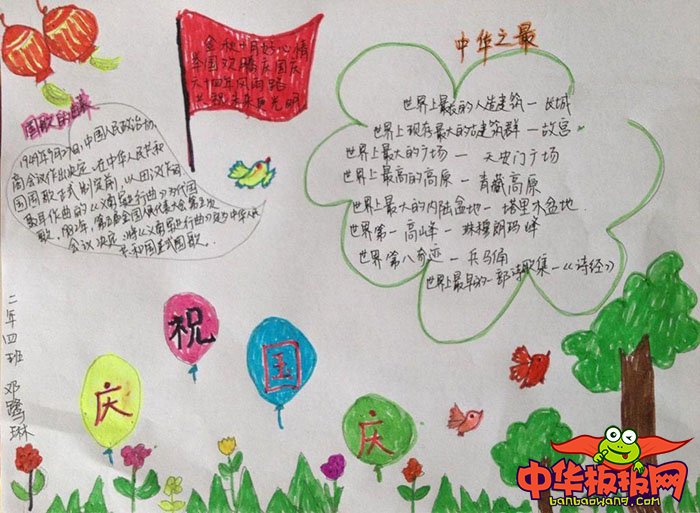 金秋十月好心情
举国欢腾庆国庆
六十四年风雨路
共祝未来更光明
中华之最
世界上最长的人造建筑一长城
世界上现存最大的古建筑群一故宫
世界上最大的广场一天安门广场
世界上最高的高原一青藏高原
世界上最大的内陆盆地一塔里木盆地.
世界第一高峰一珠穆朗玛峰
世界第八奇迹一兵马俑
世界上最早的一部诗歌集一《诗经》
国歌的
1949年9月27日,中国人民政治协
商会议作出决定,在中华人民共和
国国歌正式制定前,以田汉作词
聂耳作曲的《义勇军进行曲》为代国
歌。1982年,第五届全国人民代表大会第五次
会议决定,将《义勇军进行曲》定为中华人民
共和国正式国歌.
二年四班 邓鹭琳
庆
祝
国
庆
中华板报网
banbaowang.com